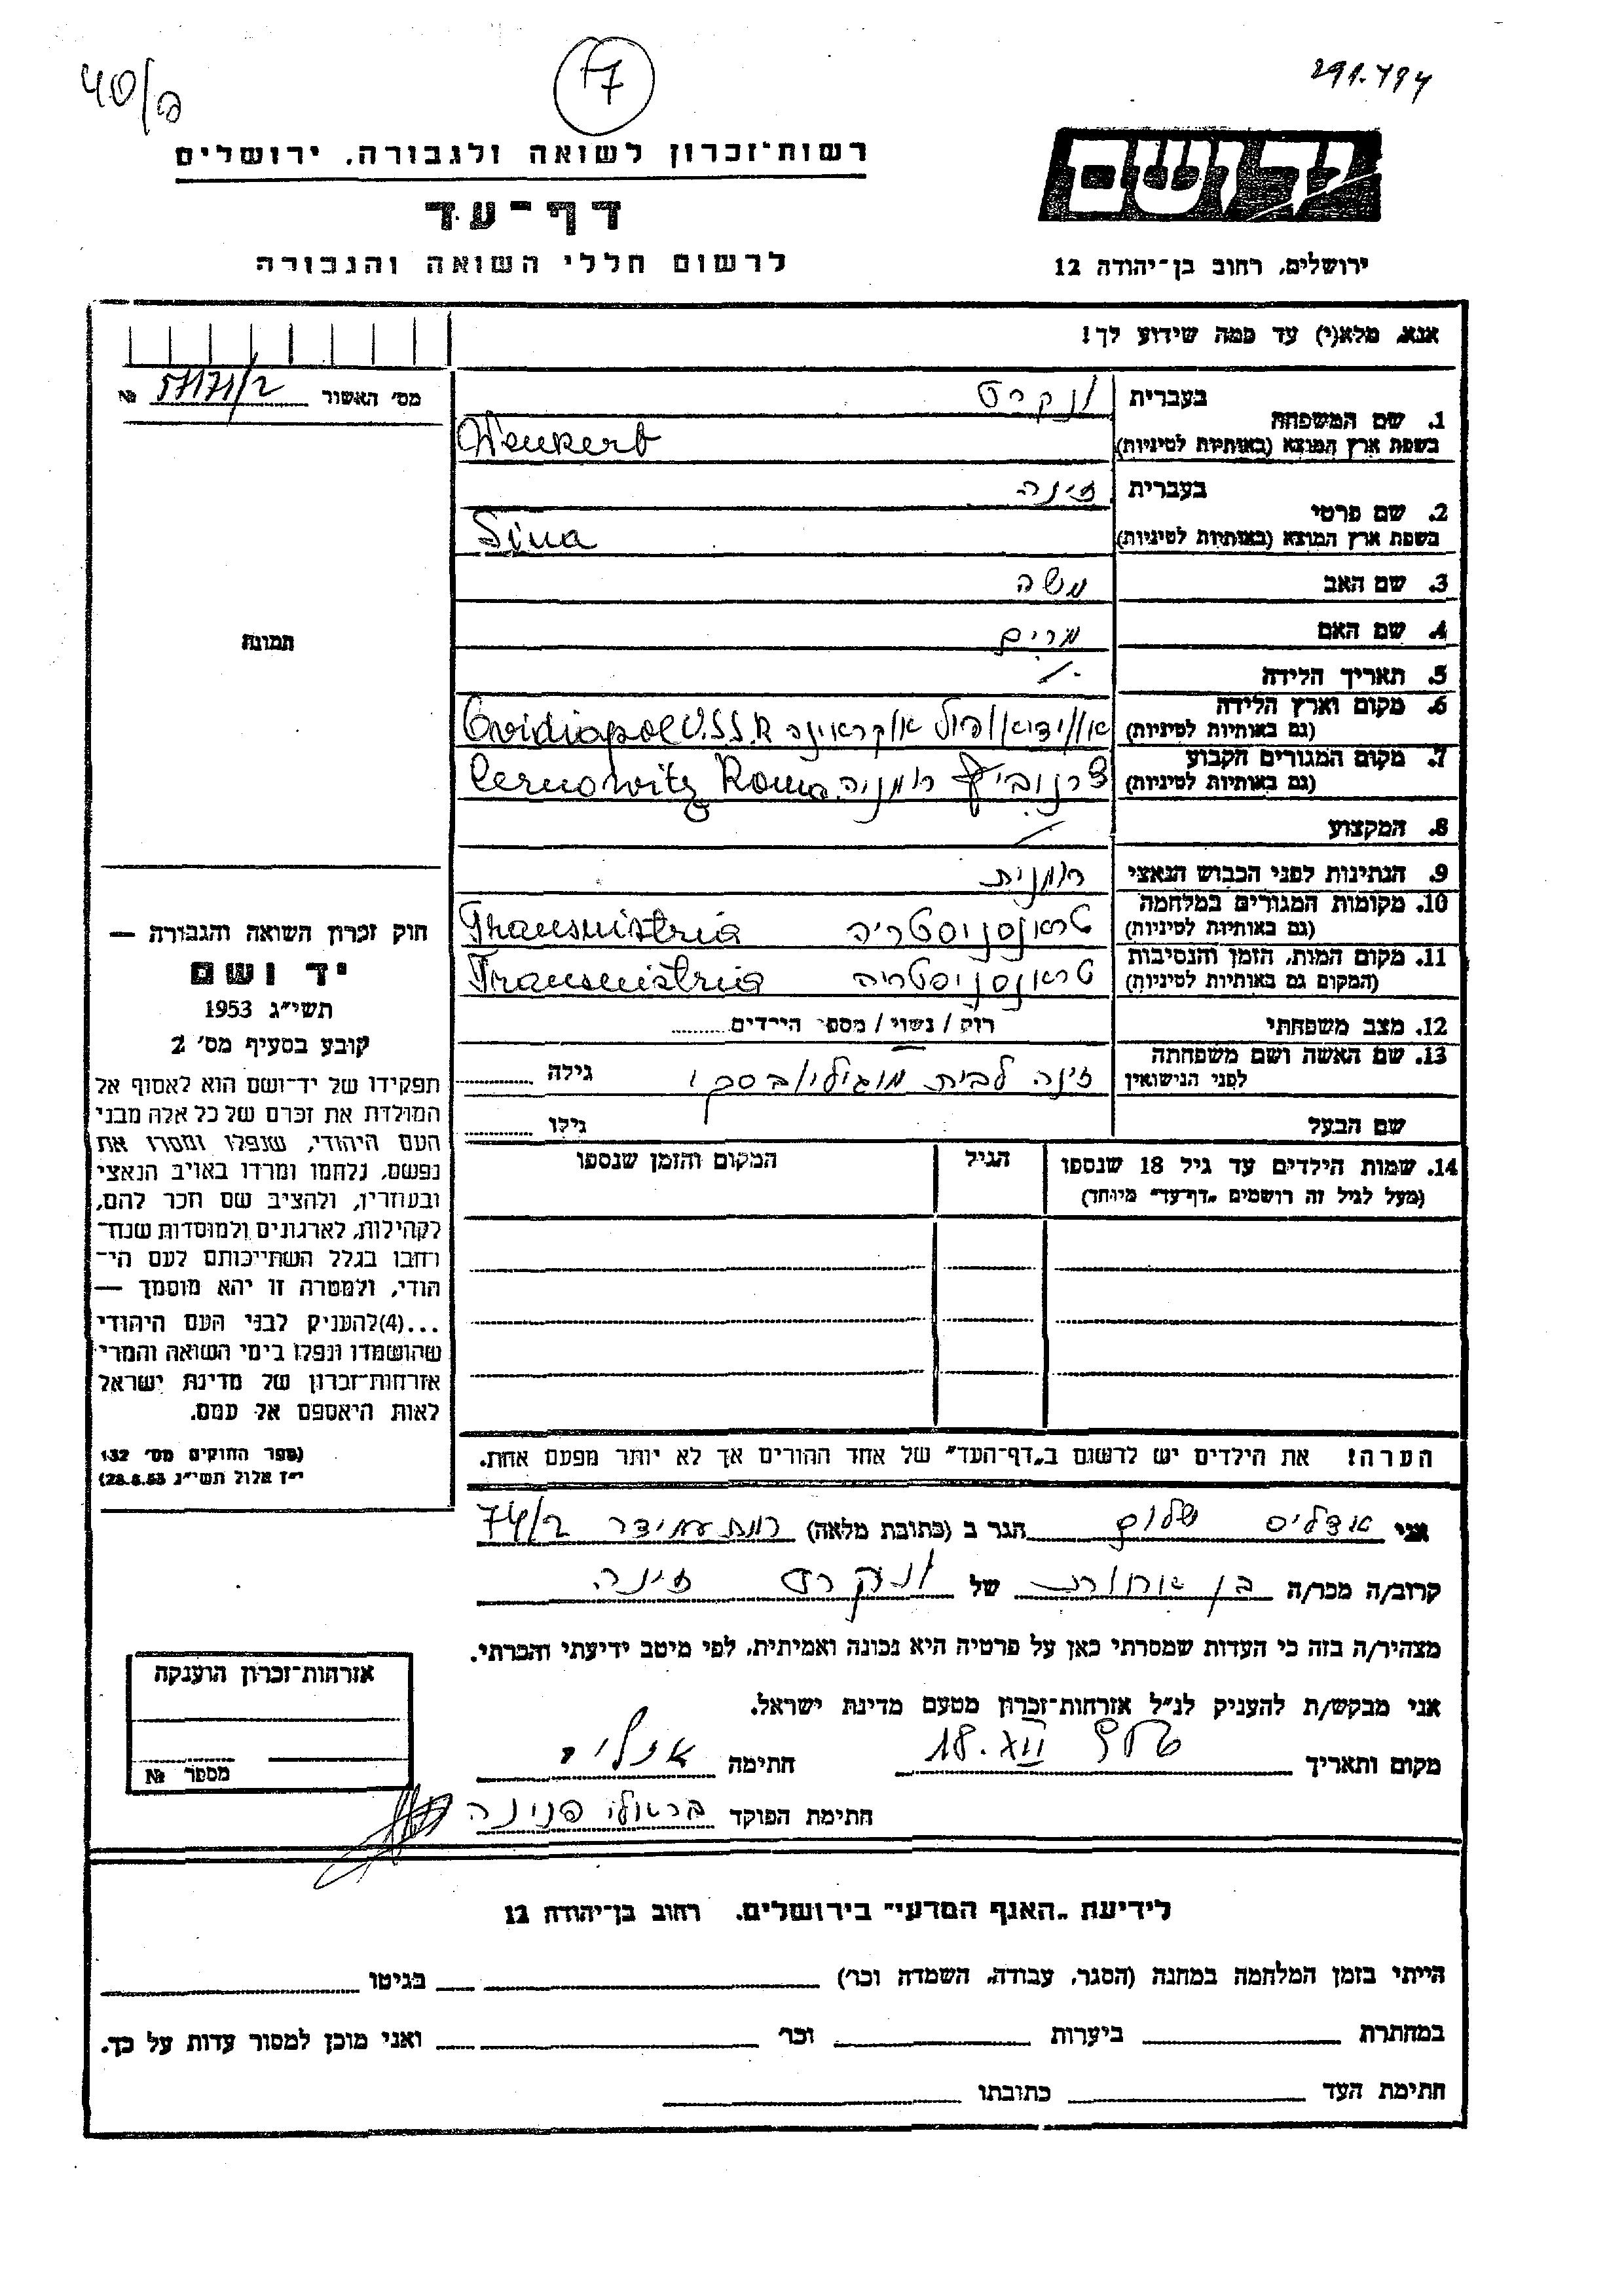 40/ם
17
291.794
רשות־זכרון לשואה ולגבורה, ירושלים
יד ושם
דף־עד
לרשום חללי השואה והגבורה
ירושלים, רחוב בן־יהודה 12
אנא, מלא(י) עד כמה שידוע לך!
מס׳ האשור 57171/2 №
בעברית ונקרט
1. שם המשפחה
בשפת ארץ המוצא (באותיות לטיניות) Wenkert
בעברית זינה
2. שם פרטי
בשפת ארץ המוצא (באותיות לטיניות) Sina
3. שם האב משה
4. שם האם מרים
תמונה
5. תאריך הלידה
6. מקום וארץ הלידה
(גם באותיות לטיניות) אווידיאופול אוקראינה Ovidiapol U.S.S.R
7. מקום המגורים הקבוע
(גם באותיות לטיניות) צרנוביץ רומניה Cernowitz Roma
8. המקצוע
9. הנתינות לפני הכבוש הנאצי רומנית
10. מקומות המגורים במלחמה
(גם באותיות לטיניות) טראנסניסטריה Thansnistria
11. מקום המות, הזמן והנסיבות
(המקום גם באותיות לטיניות) טראנסניסטריה Transnistria
12. מצב משפחתי רוק / נשוי / מספר הילדים
13. שם האשה ושם משפחתה
לפני הנישואין זינה לבית מוגילובסקי גילה
שם הבעל גילו
14. שמות הילדים עד גיל 18 שנספו הגיל המקום והזמן שנספו
(מעל לגיל זה רושמים „דף־עד״ מיוחד)
חוק זכרון השואה והגבורה —
יד ושם
תשי״ג 1953
קובע בסעיף מס׳ 2
תפקידו של יד־ושם הוא לאסוף אל
המולדת את זכרם של כל אלה מבני
העם היהודי, שנפלו ומסרו את
נפשם, נלחמו ומרדו באויב הנאצי
ובעוזריו, ולהציב שם וזכר להם,
לקהילות, לארגונים ולמוסדות שנח־
רבו בגלל השתייכותם לעם הי־
הודי, ולמטרה זו יהא מוסמך —
...(4)להעניק לבני העם היהודי
שהושמדו ונפלו בימי השואה והמרי
אזרחות־זכרון של מדינת ישראל
לאות היאספם אל עמם.
(ספר החוקים מס׳ 132
י״ז אלול תשי״ג 28.8.53)
הערה! את הילדים יש לרשום ב„דף־העד״ של אחד ההורים אך לא יותר מפעם אחת.
אני אדליס שלום הגר ב (כתובת מלאה) רמת עמידר 74/2
קרוב/ה מכר/ה בן אחות של ונקרט זינה
מצהיר/ה בזה כי העדות שמסרתי כאן על פרטיה היא נכונה ואמיתית, לפי מיטב ידיעתי והכרתי.
אני מבקש/ת להעניק לנ״ל אזרחות־זכרון מטעם מדינת ישראל.
מקום ותאריך 18.VII חתימה
חתימת הפוקד פנינה
אזרחות־זכרון הוענקה
מספר №
לידיעת „האגף המדעי״ בירושלים, רחוב בן־יהודה 12
הייתי בזמן המלחמה במחנה (הסגר, עבודה, השמדה וכו׳) בגיטו
במחתרת ביערות וכו׳ ואני מוכן למסור עדות על כך.
חתימת העד כתובתו